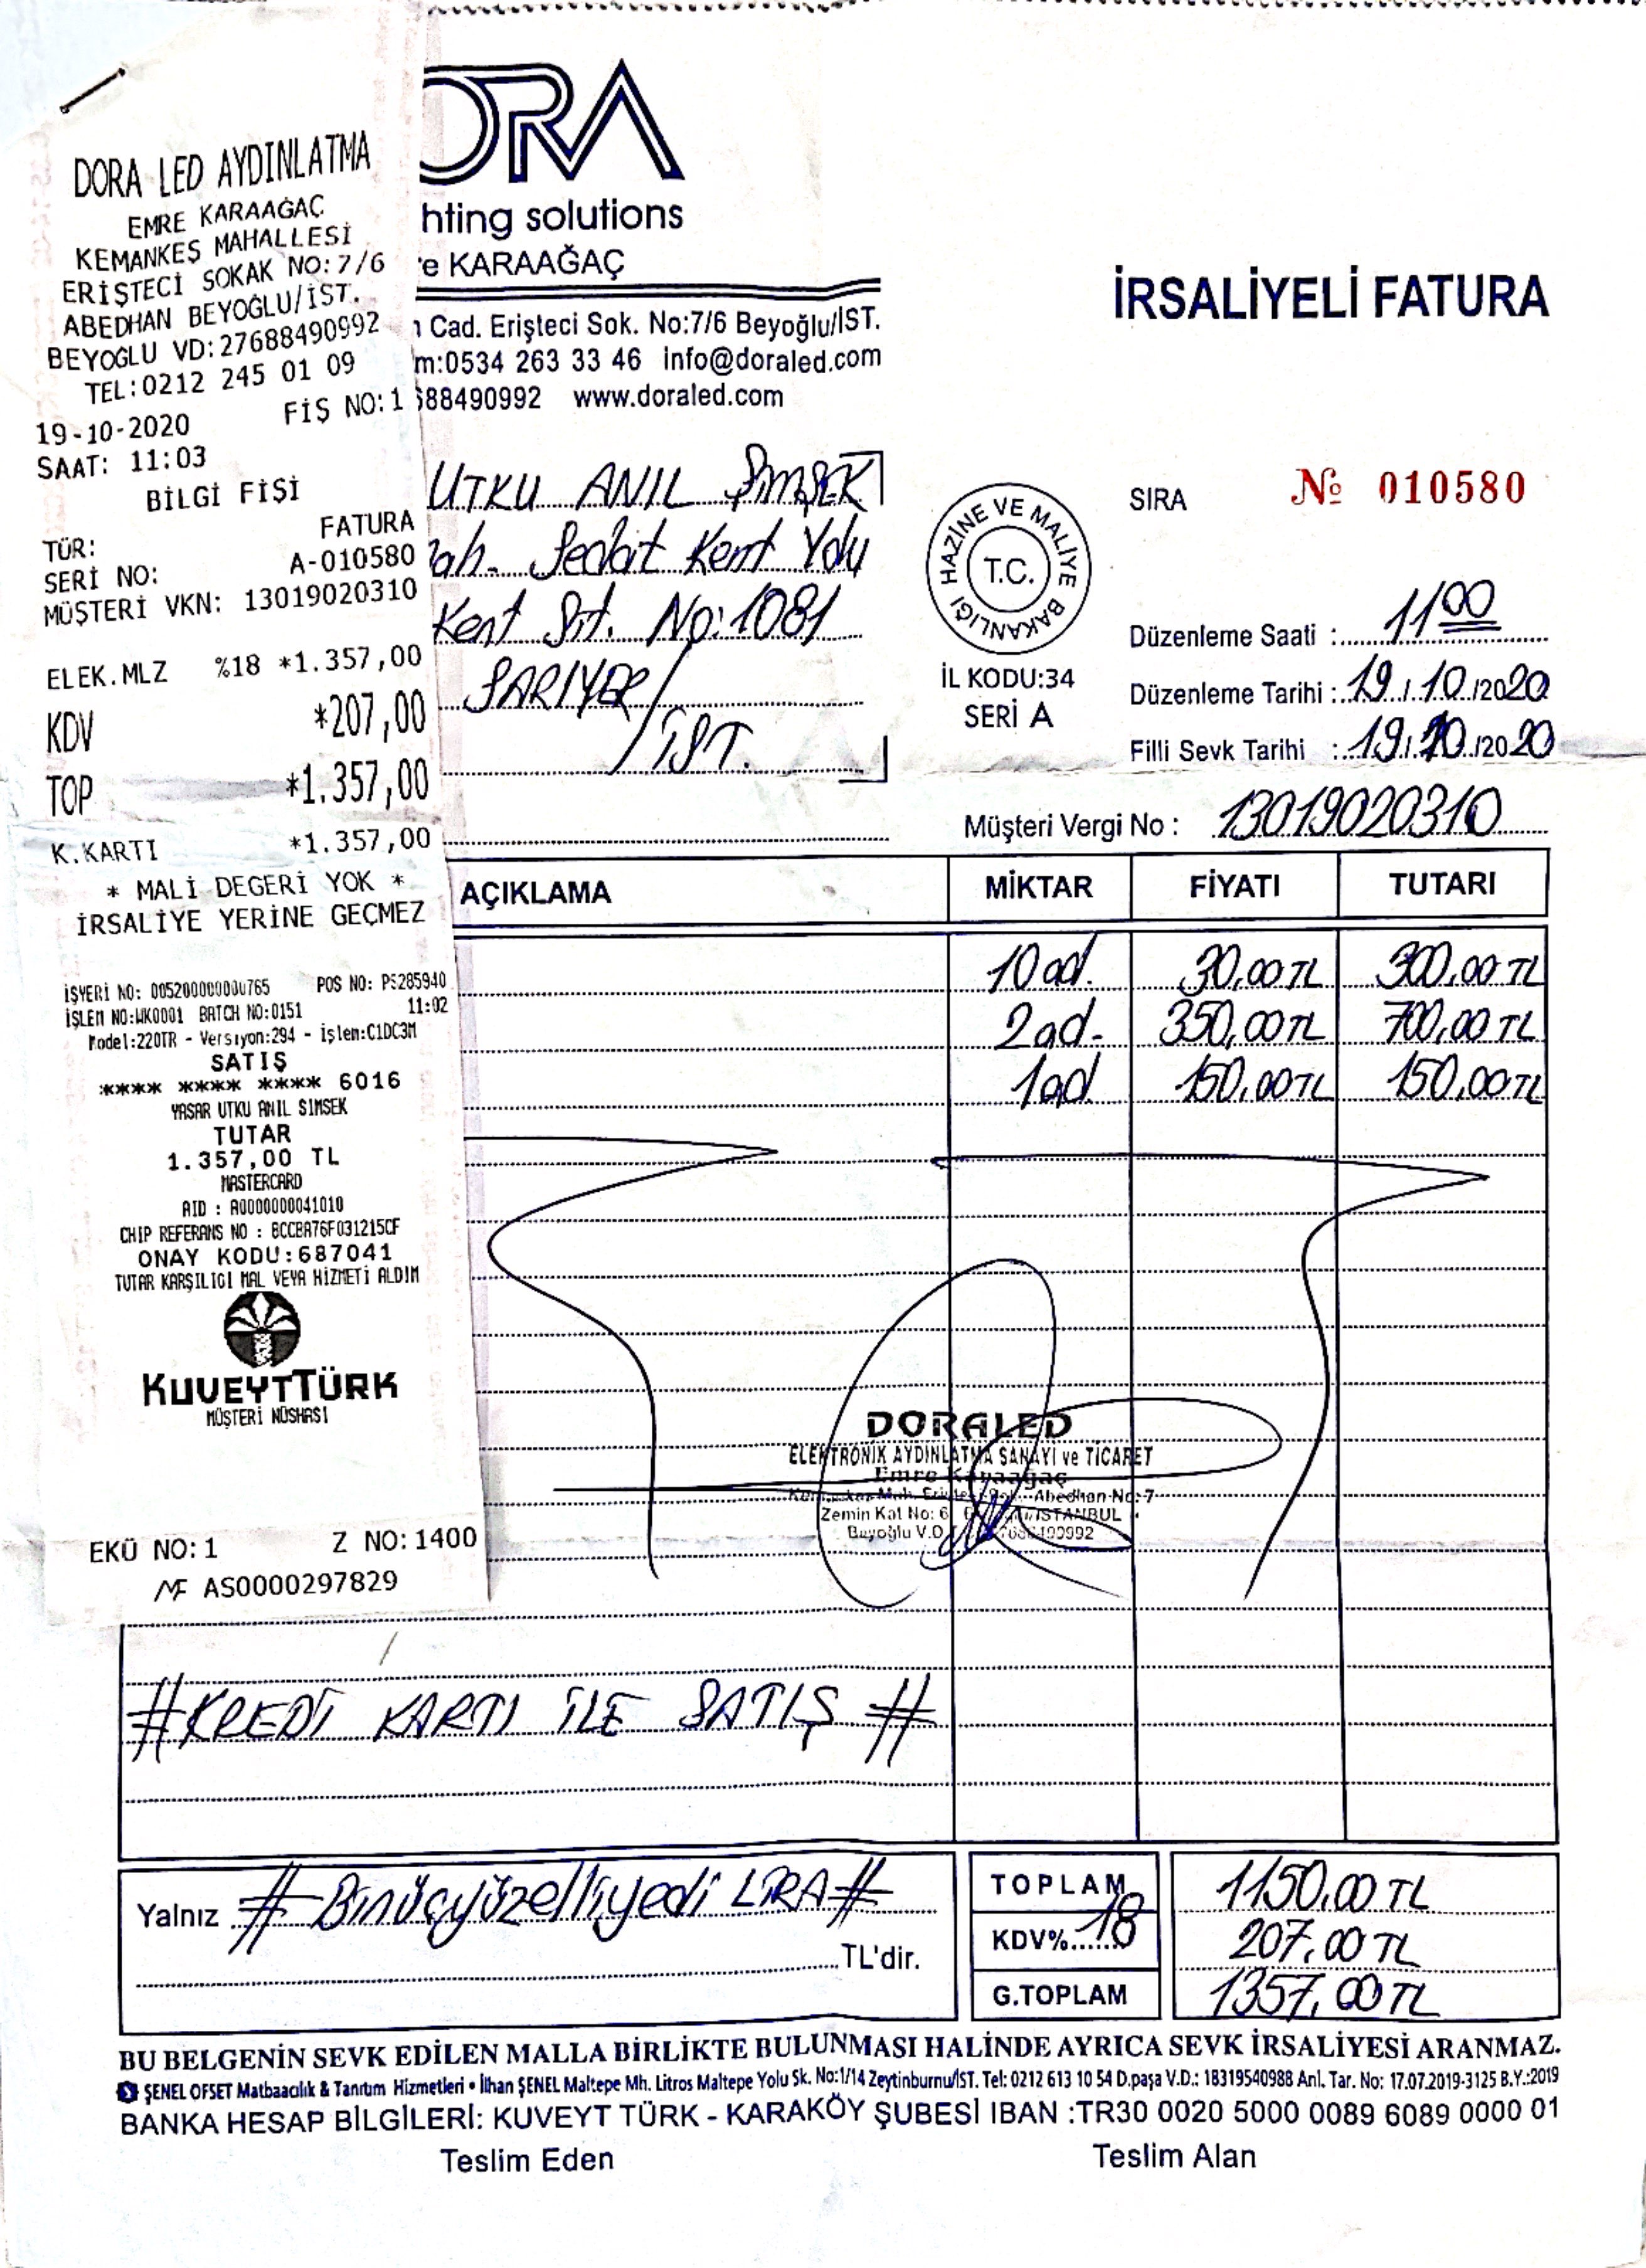 DORA LED AYDINLATMA
EMRE KARAAĞAÇ
KEMANKEŞ MAHALLESİ
ERİŞTECİ SOKAK NO:7/6
ABEDHAN BEYOĞLU/İST.
BEYOGLU VD:27688490992
TEL:0212 245 01 09
19-10-2020 FİŞ NO:1
SAAT: 11:03
BİLGİ FİŞİ
TÜR: FATURA
SERİ NO: A-010580
MÜŞTERİ VKN: 13019020310
ELEK.MLZ %18 *1.357,00
KDV *207,00
TOP *1.357,00
K.KARTI *1.357,00
* MALİ DEGERİ YOK *
İRSALİYE YERİNE GEÇMEZ
İŞYERİ NO: 005200000000765 POS NO: PS285940
İŞLEM NO:WK0001 BATCH NO:0151 11:02
Model:220TR - Versiyon:294 - İşlem:C1DC3M
SATIŞ
**** **** **** 6016
YASAR UTKU ANIL SIMSEK
TUTAR
1.357,00 TL
MASTERCARD
AID : A0000000041010
CHIP REFERANS NO : BCCBA76F031215CF
ONAY KODU:687041
TUTAR KARŞILIGI MAL VEYA HİZMETİ ALDIM
KUVEYTTÜRK
MÜŞTERİ NÜSHASI
EKÜ NO:1 Z NO:1400
MF AS0000297829
ORA
hting solutions
e KARAAĞAÇ
Cad. Erişteci Sok. No:7/6 Beyoğlu/İST.
m:0534 263 33 46 info@doraled.com
688490992 www.doraled.com
İRSALİYELİ FATURA
UTKU ANIL ŞİMŞEK
Mah. Sedat Kent Yolu
Kent Sit. No:1081
SARIYER/
İST.
HAZİNE VE MALİYE BAKANLIĞI
T.C.
İL KODU:34
SERİ A
SIRA № 010580
Düzenleme Saati : 11 00
Düzenleme Tarihi : 19/10/2020
Filli Sevk Tarihi : 19/10/2020
Müşteri Vergi No : 13019020310
AÇIKLAMA MİKTAR FİYATI TUTARI
10 ad. 30,00 TL 300,00 TL
2 ad. 350,00 TL 700,00 TL
1 ad 150,00 TL 150,00 TL
DORALED
ELEKTRONİK AYDINLATMA SANAYİ ve TİCARET
Emre Karaağaç
Abedhan No:7
Zemin Kat No: 6 İSTANBUL
Beyoğlu V.D.
# KREDİ KARTI İLE SATIŞ #
Yalnız # Binüçyüzelliyedi LİRA #
TL'dir.
TOPLAM 1150,00 TL
KDV% 18 207,00 TL
G.TOPLAM 1357,00 TL
BU BELGENİN SEVK EDİLEN MALLA BİRLİKTE BULUNMASI HALİNDE AYRICA SEVK İRSALİYESİ ARANMAZ.
ŞENEL OFSET Matbaacılık & Tanıtım Hizmetleri • İlhan ŞENEL Maltepe Mh. Litros Maltepe Yolu Sk. No:1/14 Zeytinburnu/İST. Tel: 0212 613 10 54 D.paşa V.D.: 18319540988 Anl. Tar. No: 17.07.2019-3125 B.Y.:2019
BANKA HESAP BİLGİLERİ: KUVEYT TÜRK - KARAKÖY ŞUBESİ IBAN :TR30 0020 5000 0089 6089 0000 01
Teslim Eden Teslim Alan